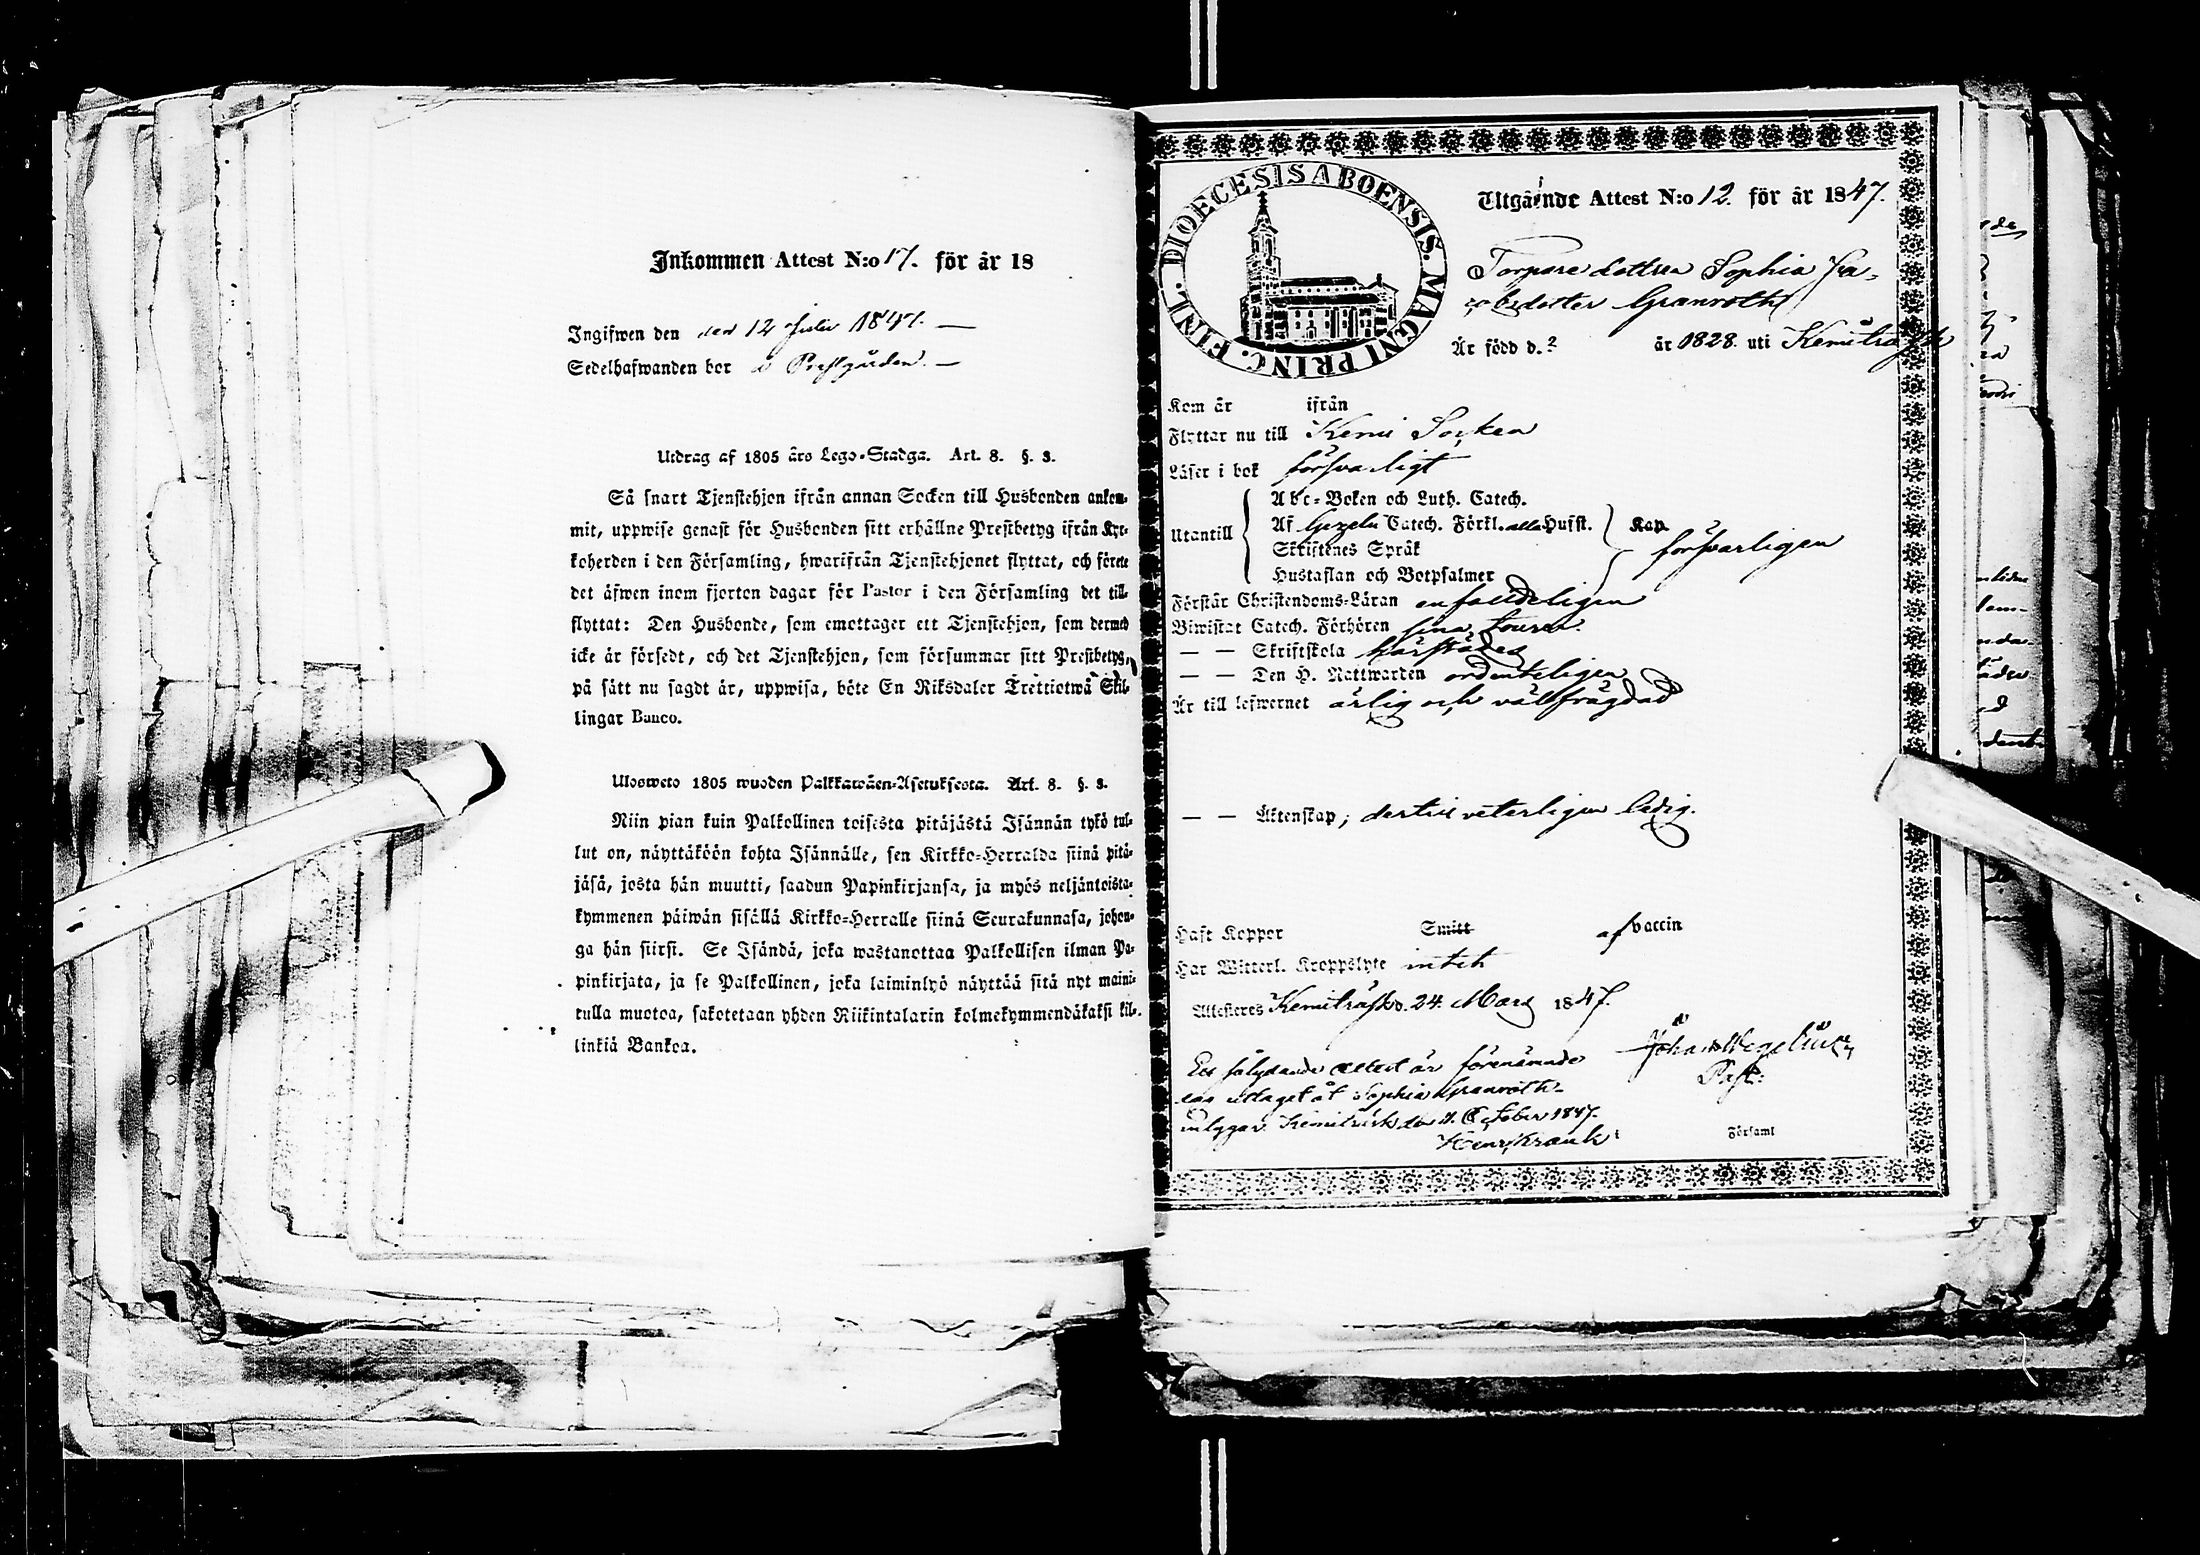 Inkommen Attest N:o 17. för år 18
Ingifwen den den 12 Julii 1847. —
Sedelhafwanden bor å Prestgården. —
Utdrag af 1805 års Lego-Stadga. Art. 8. §. 3.
Så snart Tjenstehjon ifrån annan Socken till Husbonden ankom-
mit, uppwise genast för Husbonden sitt erhållne Prestbetyg ifrån Kyr-
koherden i den Församling, hwarifrån Tjenstehjonet flyttat, och förete
det äfwen inom fjorton dagar för Pastor i den Församling det till-
flyttat: Den Husbonde, som emottager ett Tjenstehjon, som dermed
icke är försedt, och det Tjenstehjon, som försummar sitt Prestbetyg,
på sätt nu sagdt är, uppwisa, böte En Riksdaler Trettiotwå Skil-
lingar Banco.
Ulosweto 1805 wuoden Palkkawäen-Asetuksesta. Art. 8. §. 3.
Niin pian kuin Palkollinen toisesta pitäjästä Isännän tykö tul-
lut on, näyttäköön kohta Isännälle, sen Kirkko-Herralda siinä pitä-
jäsä, josta hän muutti, saadun Papinkirjansa, ja myös neljäntoista-
kymmenen päiwän sisällä Kirkko-Herralle siinä Seurakunnasa, johon-
ga hän siirsi. Se Isändä, joka wastanottaa Palkollisen ilman Pa-
pinkirjata, ja se Palkollinen, joka laiminlyö näyttää sitä nyt maini-
tulla muotoa, sakotetaan yhden Riikintalarin kolmekymmendäkaksi kil-
linkiä Bankoa.
DIOECESIS ABOENSIS. MAGNI PRINC. FINL.
Utgående Attest N:o 12. för år 1847.
Torpare dottren Sophia Ja-
cobsdotter Granroth
Är född d. ? år 1828. uti Kemiträsk
Kom år ifrån
Flyttar nu till Kemi Socken
Läser i bok försvarligt
Utantill
Abc-Boken och Luth. Catech.
Af Gezelii Catech. Förkl. alla Hufst. Kap.
Skriftenes Språk
Hustaflan och Botpsalmer
försvarligen
Förstår Christendoms-Läran enfaldeligen
Biwistat Catech. Förhören sina tourer.
— — Skriftskola härstädes
— — Den H. Nattwarden ordenteligen
Är till lefwernet ärlig och välfrägdad
— — Äktenskap; dertill veterligen ledig.
Haft Koppor Smitt af vaccin
Har Witterl. Kroppslyte intet
Attesteres Kemiträsk d. 24. Mars 1847.
Johan Wegelius
Past:
Ett följdande attest är förenämnde
utlaget åt Sophia Granroth
Kemiträsk den 11. October 1847.
Henr. Krank
Församl